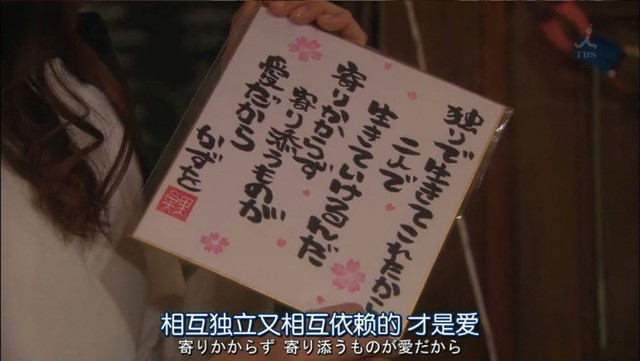 独りで生きてこれたから
二人で
生きていけるんだ
寄りかからず
寄り添うものが
愛だから
かずを
TBS
相互独立又相互依赖的 才是爱
寄りかからず 寄り添うものが愛だから